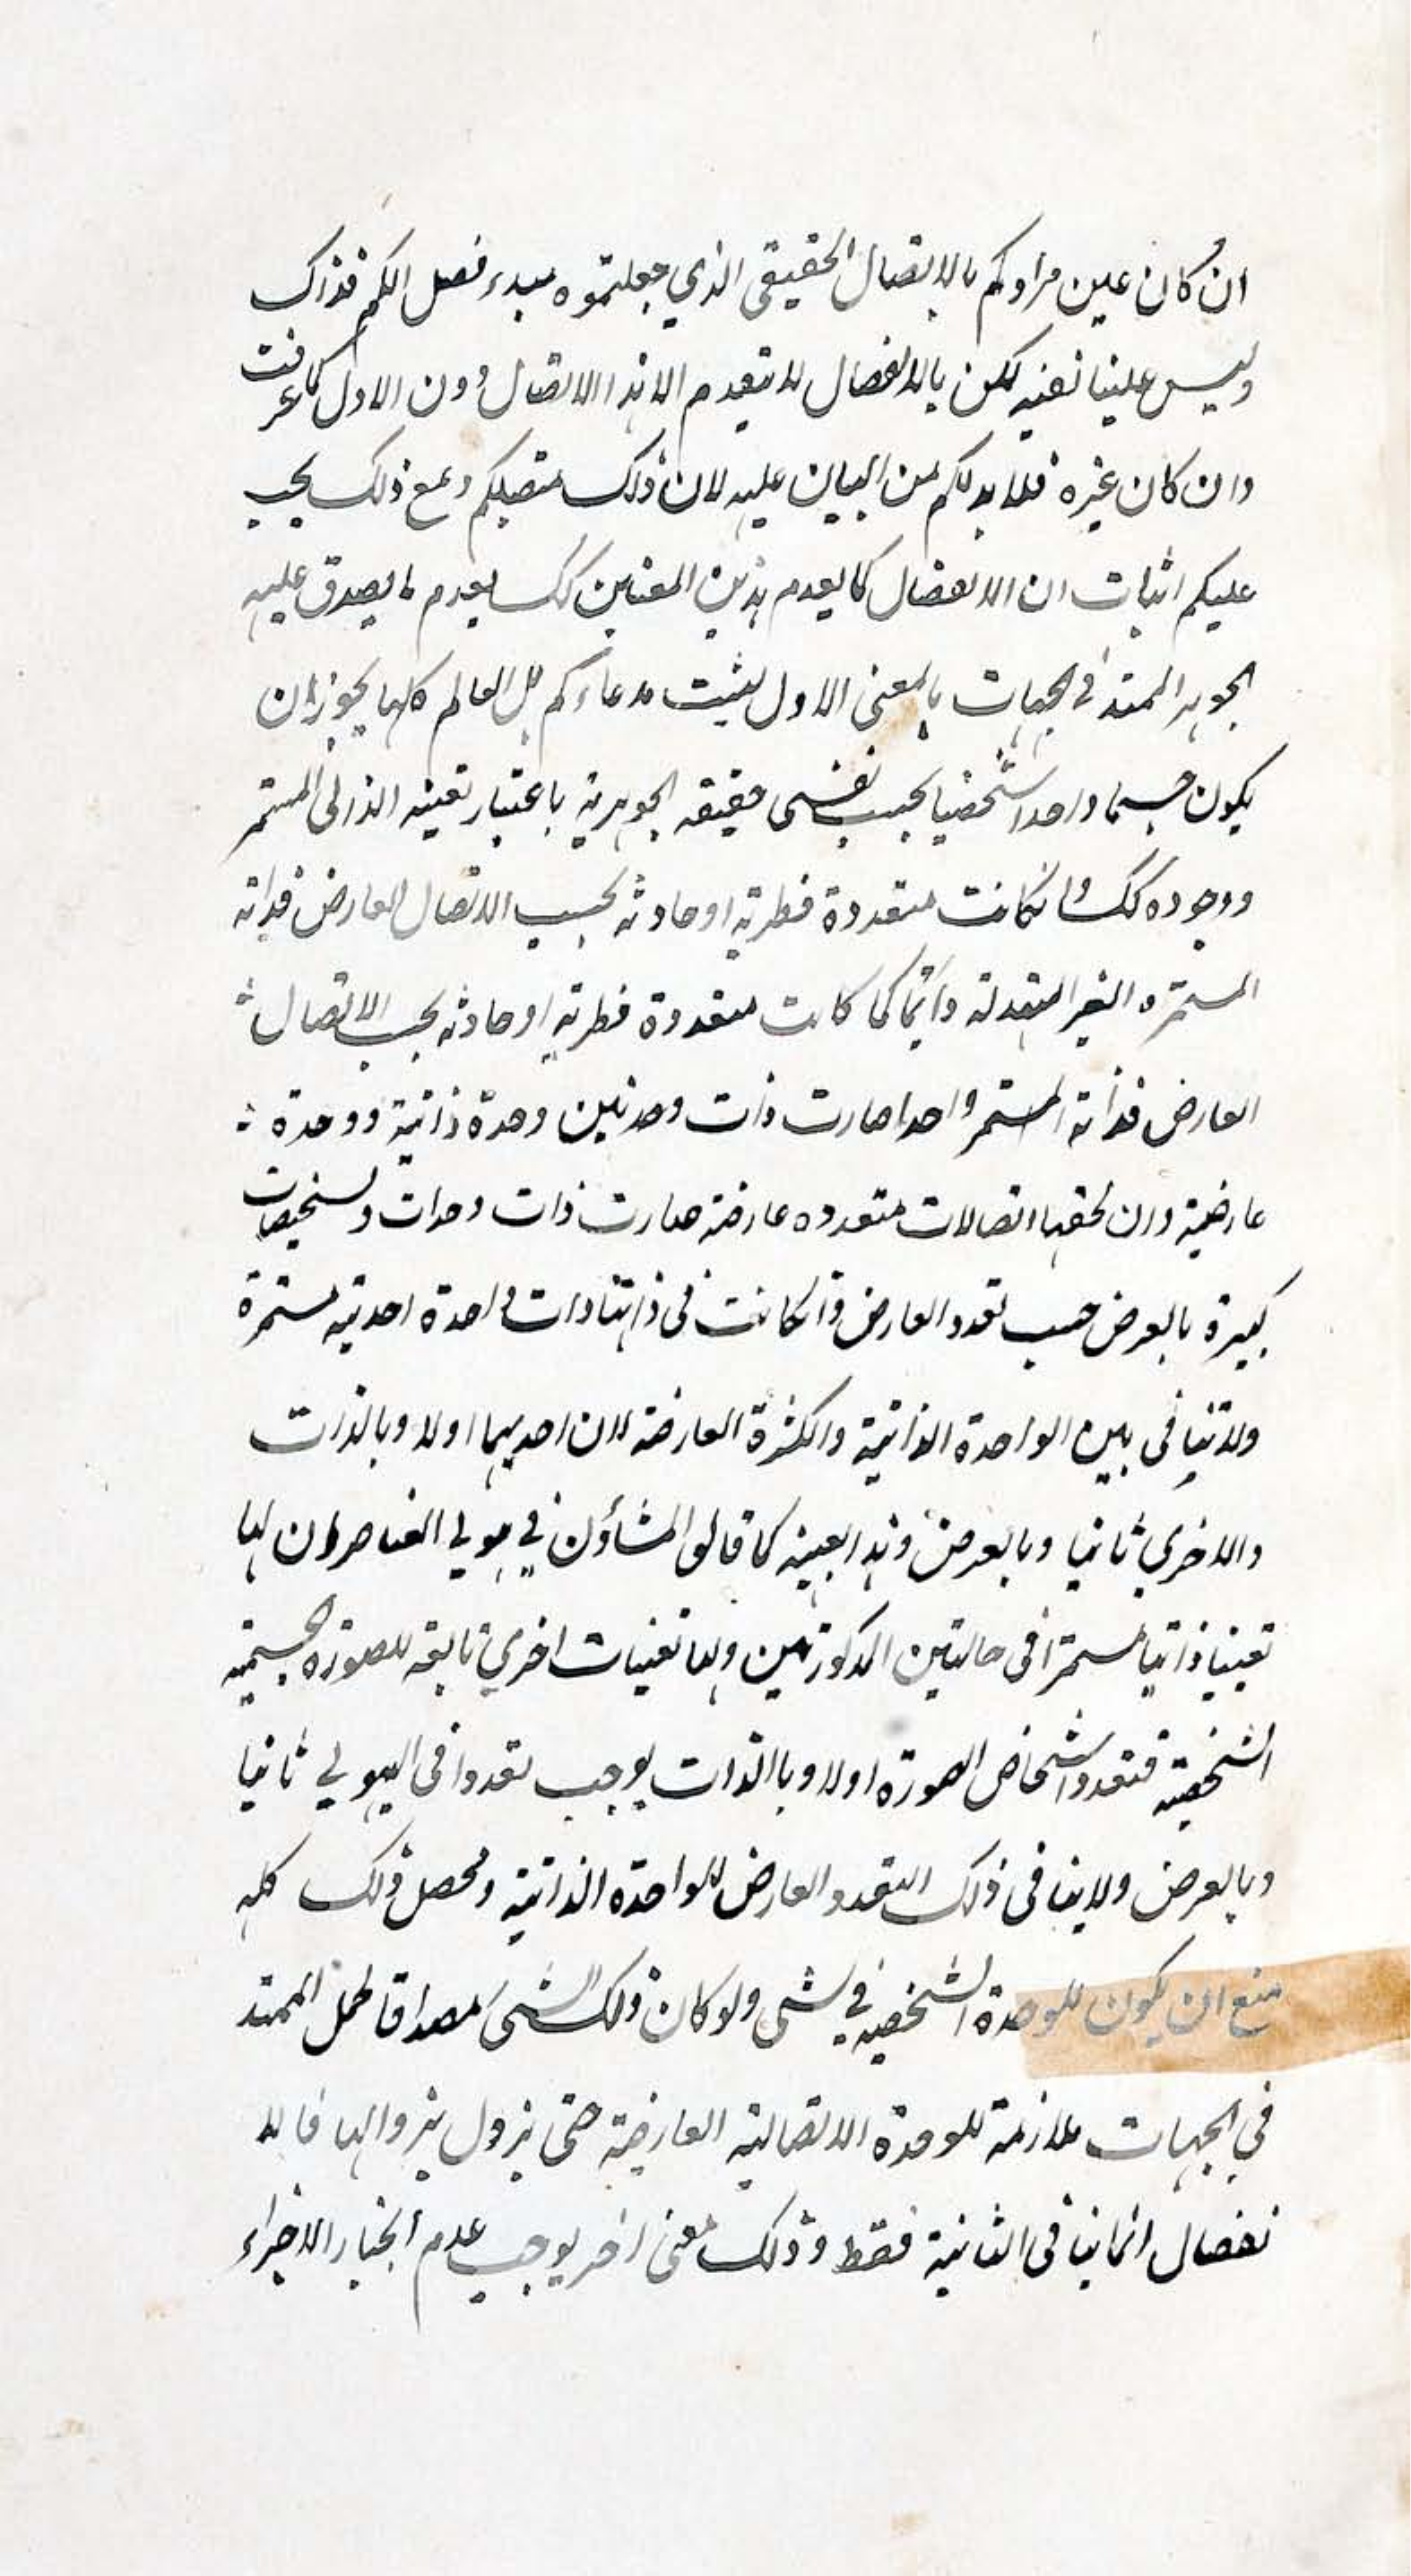 ان كان عين مرادكم بالاتصال الحقيقى الذي جعلتموه مبدء فصل الكم فذاك
وليس علينا نفيه لكن بالانفصال لا يتعدم الا هذا الاتصال دون الاول كما عرفت
وان كان غيره فلا بد لكم من البيان عليه لان ذلك متصلكم ومع ذلك يجب
عليكم اثبات ان الانفصال كما يعدم هذين المعنيين كك يعدم ما يصدق عليه
الجوهر الممتد فى الجهات بالمعنى الاول ليثبت مدعاءكم بل العالم كلها يجوز ان
يكون جسما واحدا شخصيا بحسب نفسى حقيقه الجوهرية باعتبار تعينه الذاتى المستمر
ووجوده كك وان كانت متعددة فطرية او حادثه بحسب الاتصال العارض فذاته
المستمره الغير المتبدلة دائما كما كانت متعددة فطرية او حادثه بحسب الاتصال
العارض فذاته المستمر واحدا صارت ذات وحدتين وحدة ذاتية ووحدة
عارضية وان لحقها اتصالات متعدده عارضة صارت ذات وحدات وتشخيصات
كثيرة بالعرض حسب تعدد العارض وان كانت فى ذاتها ذات واحدة احدية مستمرة
ولا تنافى بين الواحدة الذاتية والكثرة العارضة لان احديهما اولا وبالذات
والاخري ثانيا وبالعرض وهذا بعينه كما قالوا المشاؤن في هيولي العناصر وان لها
تعينا ذاتيا مستمرا فى حالتين المذكورتين ولها تعينات اخري تابعة للصورة الجسمية
الشخصية فتعدد اشخاص الصورة اولا وبالذات يوجب تعددا فى الهيولي ثانيا
وبالعرض ولا ينافى ذلك التعدد العارض للواحدة الذاتية ومحصل ذلك كله
منع ان يكون للوحدة الشخصيه في شى ولو كان ذلك الشىء مصداقا لحمل الممتد
في الجهات ملازمة للوحدة الاتصالية العارضة حتى يزول بزوالها فالا
نفصال انما ينافى الثانية فقط وذلك معنى اخر يوجب عدم انحياز الاجزاء